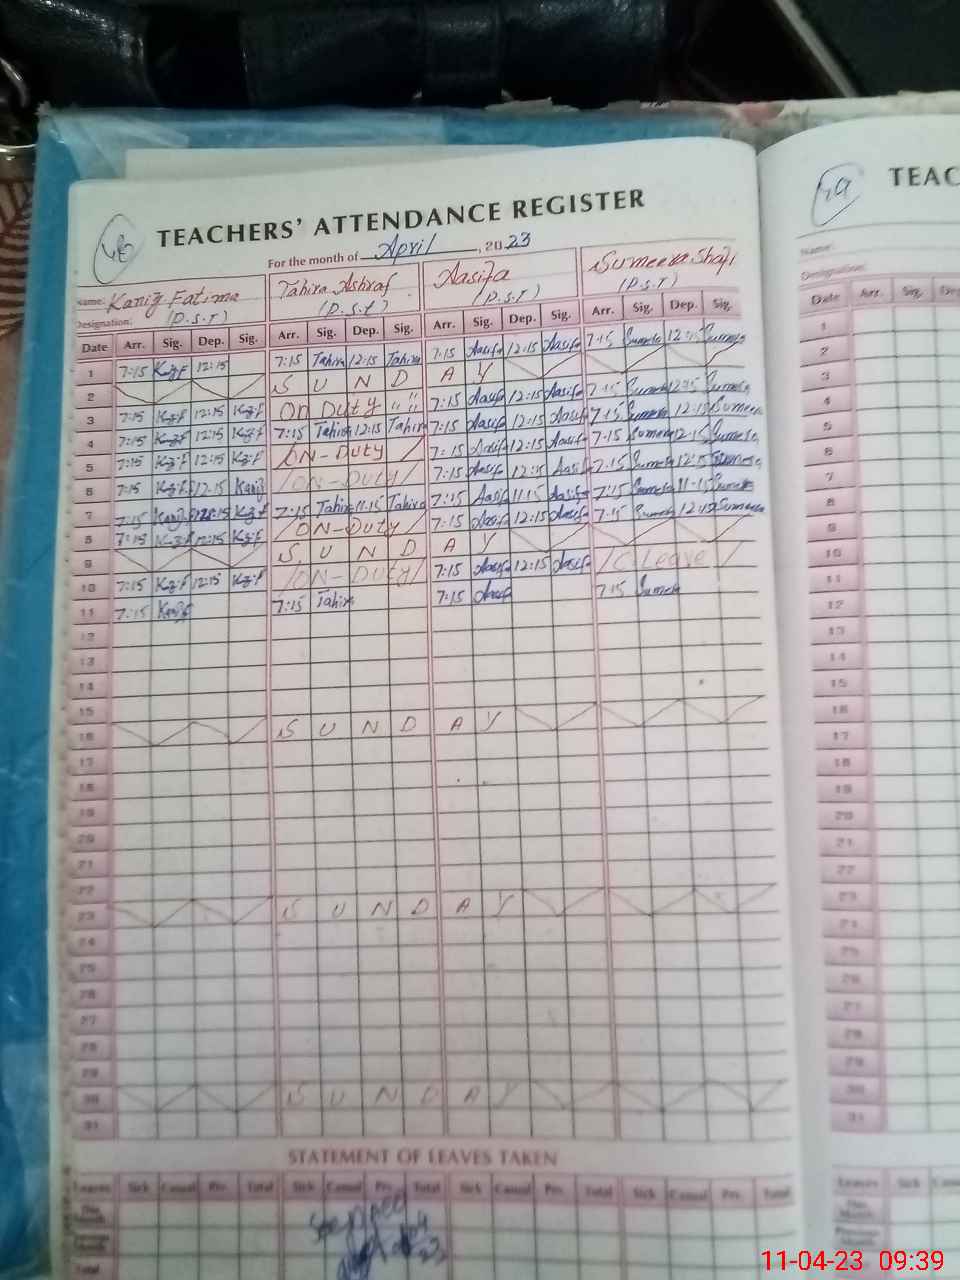 48
TEACHERS' ATTENDANCE REGISTER
For the month of April, 2023
Name: Kaniz Fatima Tahira Ashraf Aasifa Sumeera Shafi
Designation: (P.S.T) (P.S.T) (P.S.T) (P.S.T)
Date Arr. Sig. Dep. Sig. Arr. Sig. Dep. Sig. Arr. Sig. Dep. Sig. Arr. Sig. Dep. Sig.
1 7:15 Kz.F 12:15 7:15 Tahira 12:15 Tahira 7:15 Aasifa 12:15 Aasifa 7:15 Sumeera 12:15 Sumeera
2 S U N D A Y
3 7:15 Kz.F 12:15 Kz.F On Duty " " 7:15 Aasifa 12:15 Aasifa 7:15 Sumeera 12:15 Sumeera
4 7:15 Kz.F 12:15 Kz.F 7:15 Tahira 12:15 Tahira 7:15 Aasifa 12:15 Aasifa 7:15 Sumeera 12:15 Sumeera
5 7:15 Kz.F 12:15 Kz.F /ON-Duty / 7:15 Aasifa 12:15 Aasifa 7:15 Sumeera 12:15 Sumeera
6 7:15 Kz.F 12:15 Kaniz /ON-Duty/ 7:15 Aasifa 12:15 Aasifa 7:15 Sumeera 12:15 Sumeera
7 7:15 Kaniz Kz.F 7:15 Tahira 11:15 Tahira 7:15 Aasifa 11:15 Aasifa 7:15 Sumeera 11:15 Sumeera
8 7:15 Kz.F 12:15 Kz.F /ON-Duty / 7:15 Aasifa 12:15 Aasifa 7:15 Sumeera 12:15 Sumeera
9 S U N D A Y
10 7:15 Kz.F 12:15 Kz.F /ON-Duty/ 7:15 Aasifa 12:15 Aasifa /C Leave /
11 7:15 Kaniz 7:15 Tahira 7:15 Aasifa 7:15 Sumeera
12
13
14
15
16 S U N D A Y
17
18
19
20
21
22
23 S U N D A Y
24
25
26
27
28
29
30 S U N D A Y
31
STATEMENT OF LEAVES TAKEN
Leaves Sick Casual Prv. Total Sick Casual Prv. Total Sick Casual Prv. Total Sick Casual Prv. Total
This Month
Previous Month
Total
49
TEAC
Name:
Designation:
Date Arr. Sig. De
1
2
3
4
5
6
7
8
9
10
11
12
13
14
15
16
17
18
19
20
21
22
23
24
25
26
27
28
29
30
31
Leaves Sick
This Month
Previous Month
Total
11-04-23 09:39